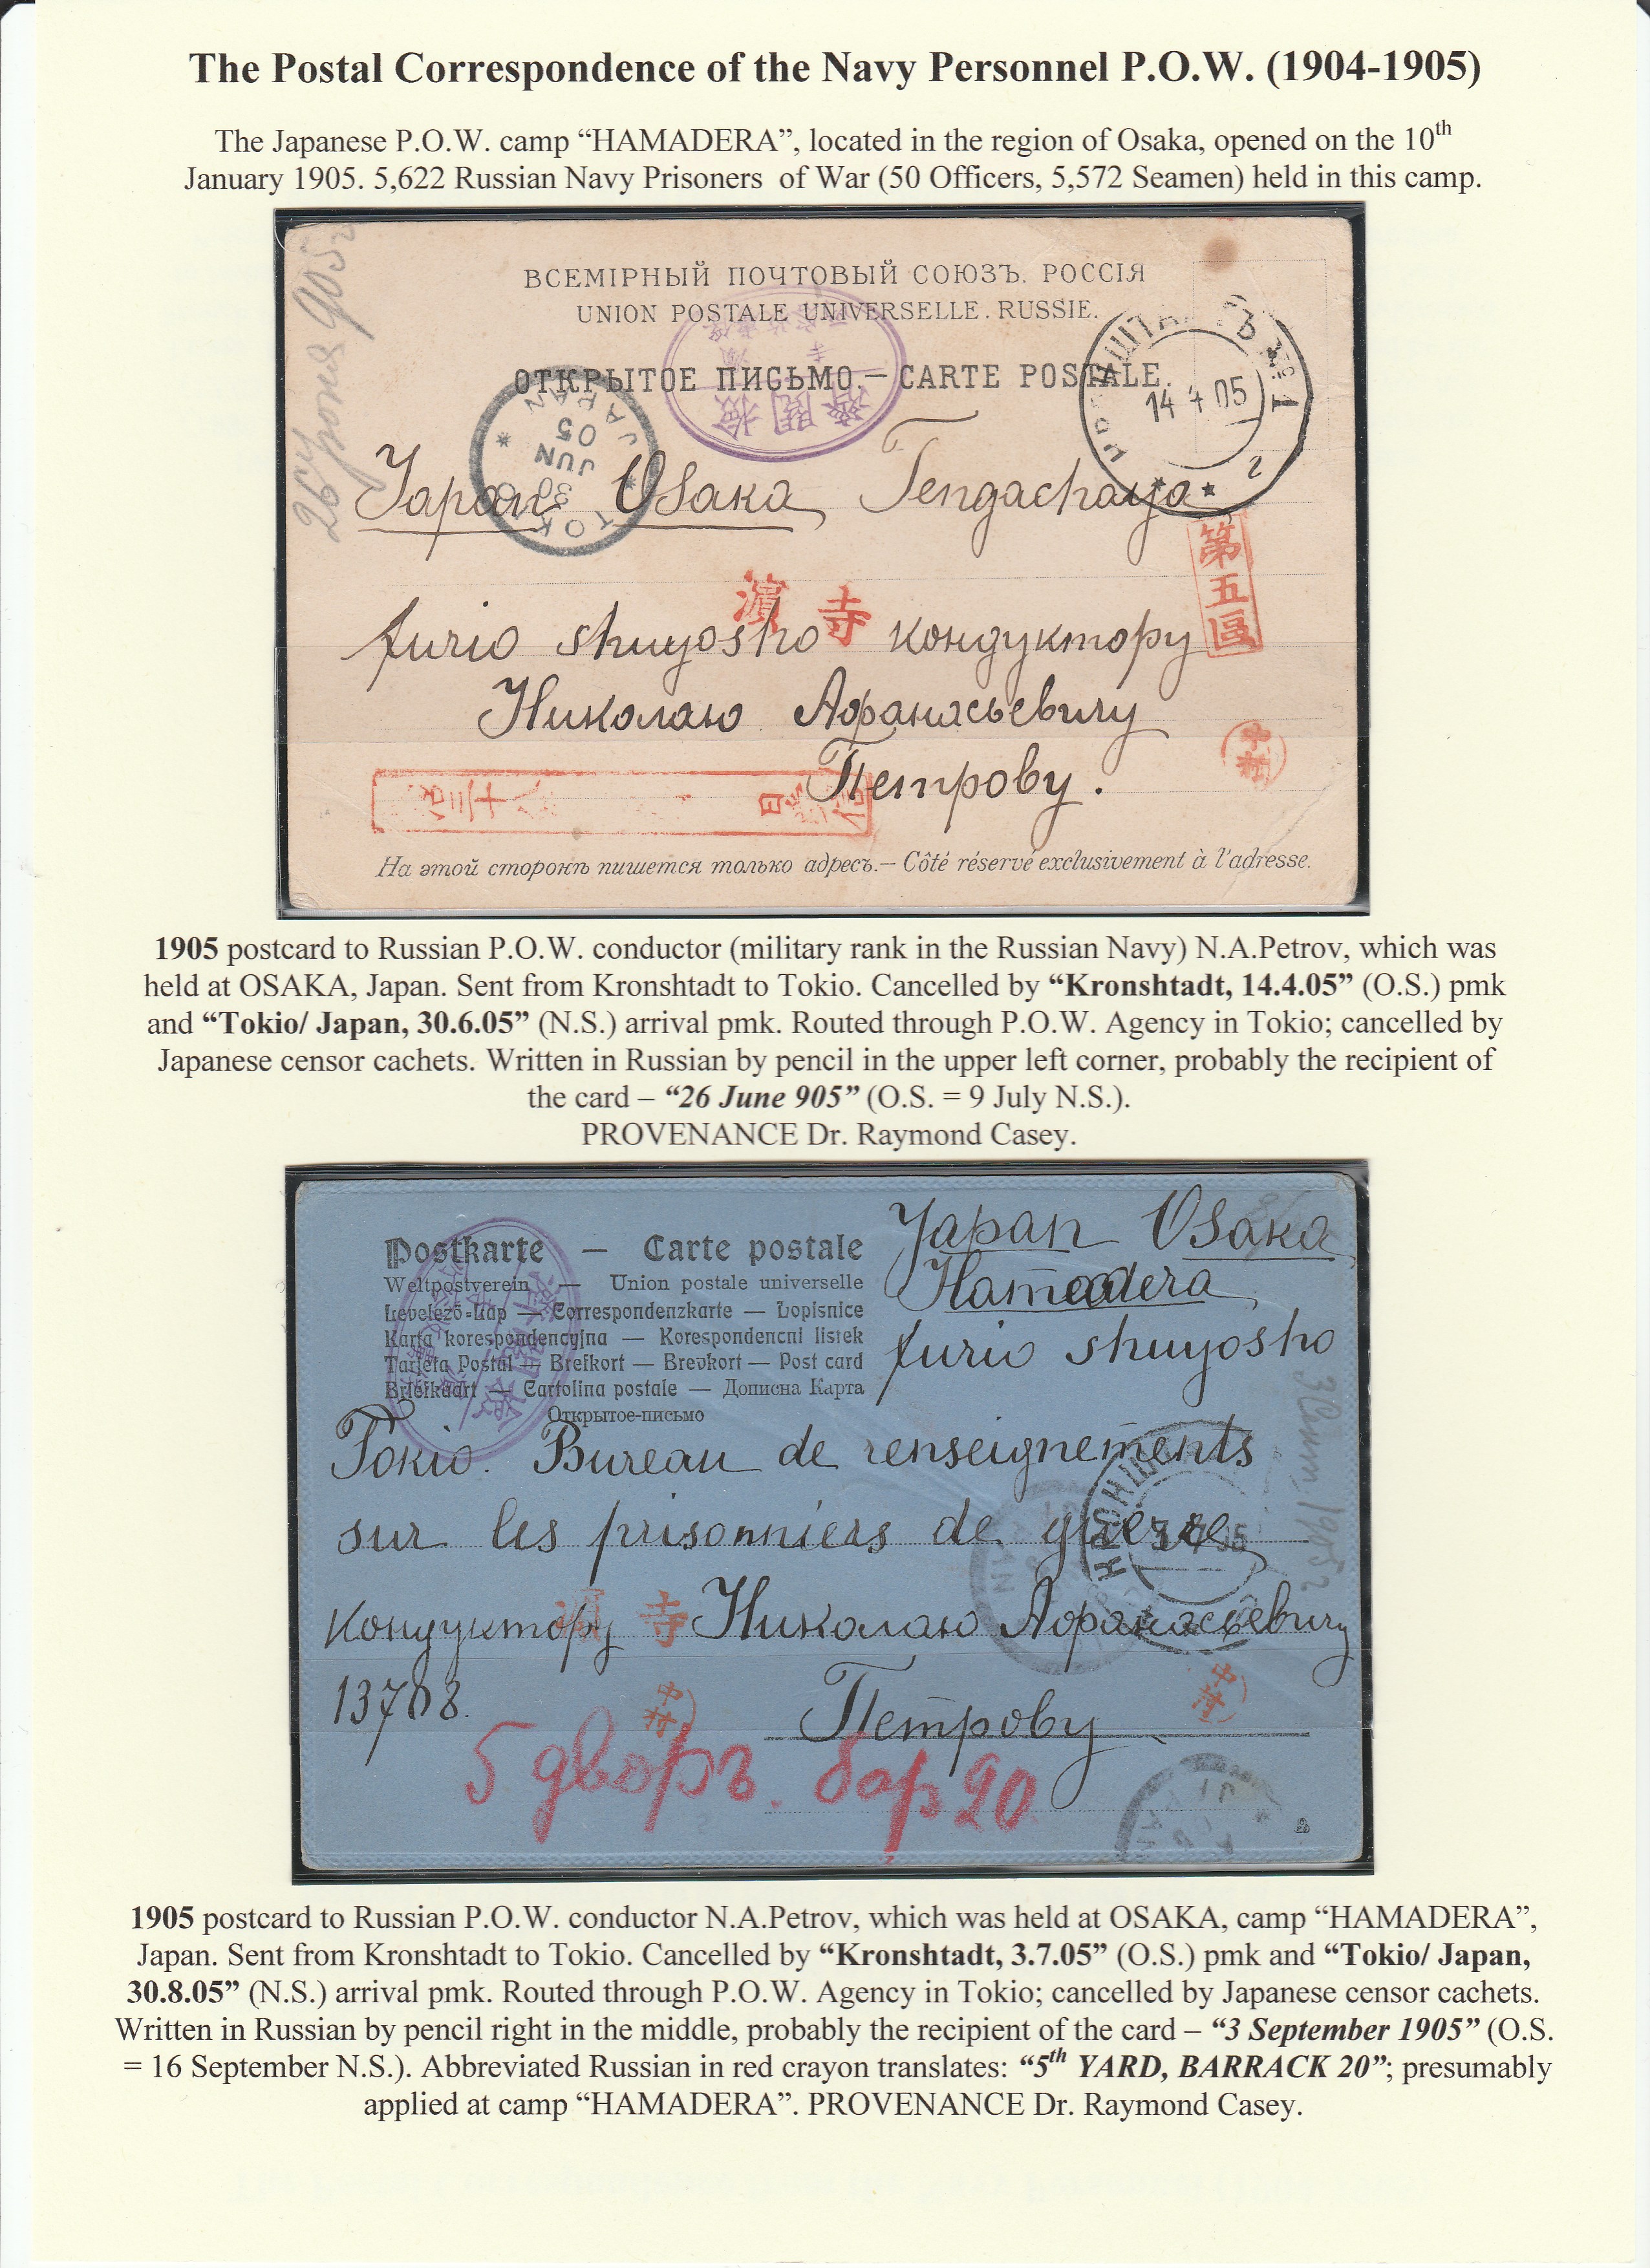 The Postal Correspondence of the Navy Personnel P.O.W. (1904-1905)
The Japanese P.O.W. camp “HAMADERA”, located in the region of Osaka, opened on the 10th
January 1905. 5,622 Russian Navy Prisoners of War (50 Officers, 5,572 Seamen) held in this camp.
26го июня 905г
ВСЕМІРНЫЙ ПОЧТОВЫЙ СОЮЗЪ. РОССІЯ
UNION POSTALE UNIVERSELLE. RUSSIE.
ОТКРЫТОЕ ПИСЬМО.— CARTE POSTALE.
14 4 05
TOKIO
30
JUN
05
JAPAN
Japan Osaka Tengachaya
第五區
濱寺
furio shuyosho кондуктору
Николаю Афанасьевичу
中村
Петрову.
На этой сторонѣ пишется только адресъ.— Côté réservé exclusivement à l'adresse.
1905 postcard to Russian P.O.W. conductor (military rank in the Russian Navy) N.A.Petrov, which was
held at OSAKA, Japan. Sent from Kronshtadt to Tokio. Cancelled by “Kronshtadt, 14.4.05” (O.S.) pmk
and “Tokio/ Japan, 30.6.05” (N.S.) arrival pmk. Routed through P.O.W. Agency in Tokio; cancelled by
Japanese censor cachets. Written in Russian by pencil in the upper left corner, probably the recipient of
the card – “26 June 905” (O.S. = 9 July N.S.).
PROVENANCE Dr. Raymond Casey.
Japan Osaka
Hamadera
furio shuyosho
Postkarte — Carte postale
Weltpostverein — Union postale universelle
Levelező-Lap — Correspondenzkarte — Dopisnice
Karta korespondencyjna — Korespondencni listek
Tarjeta Postal — Brefkort — Brevkort — Post card
Briefkaart — Cartolina postale — Дописна Карта
Открытое-письмо
Tokio. Bureau de renseignements
sur les prisonniers de guerre
濱寺
Кондуктору Николаю Афанасьевичу
13708.
中村
中村
Петрову
5 дворъ. бар 20
1905 postcard to Russian P.O.W. conductor N.A.Petrov, which was held at OSAKA, camp “HAMADERA”,
Japan. Sent from Kronshtadt to Tokio. Cancelled by “Kronshtadt, 3.7.05” (O.S.) pmk and “Tokio/ Japan,
30.8.05” (N.S.) arrival pmk. Routed through P.O.W. Agency in Tokio; cancelled by Japanese censor cachets.
Written in Russian by pencil right in the middle, probably the recipient of the card – “3 September 1905” (O.S.
= 16 September N.S.). Abbreviated Russian in red crayon translates: “5th YARD, BARRACK 20”; presumably
applied at camp “HAMADERA”. PROVENANCE Dr. Raymond Casey.